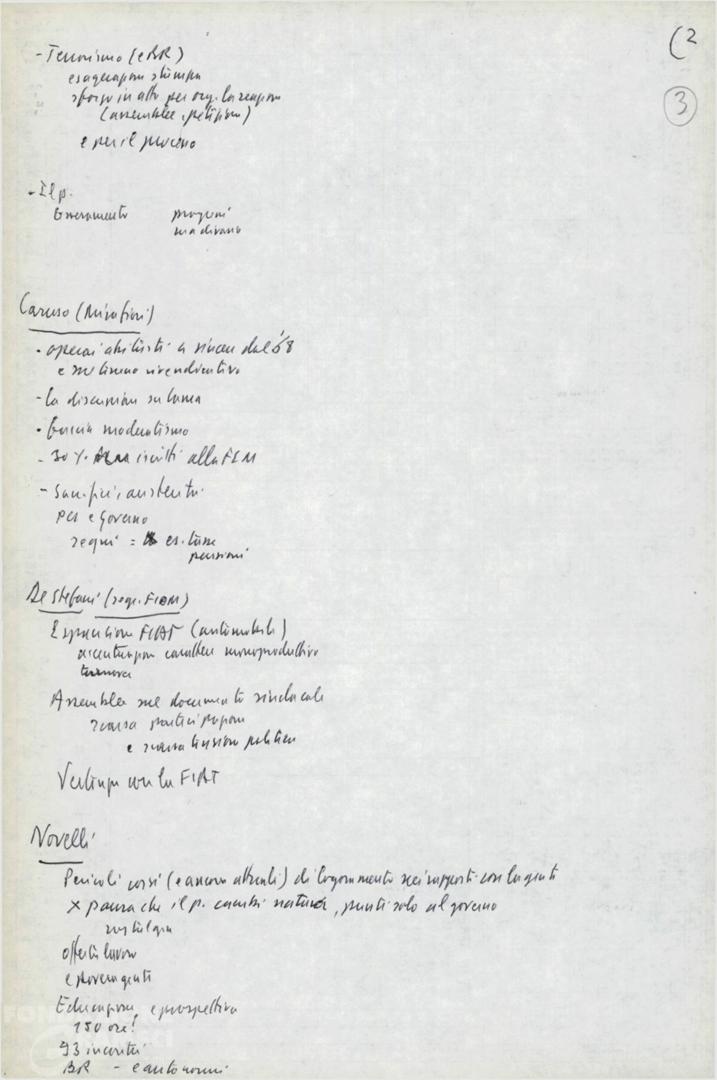 (2
3
- Terrorismo (e BR)
esagerazioni stampa
sforzo in atto per org. la reazione
(assemblee, petizioni)
e per il processo
- Il p.
Governamento progressi
ma divario
Caruso (Mirafiori)
- operai abituati a vincere dal '68
e sul terreno rivendicativo
- la discussione su Lama
- moderatismo
- 30% iscritti alla FLM
- Sacrifici, austerità
PCI e Governo
segni = es. tasse
pensioni
De Stefani (segr. FIOM)
Espansione FIAT (automobili)
accentuazione carattere monoproduttivo
Assemblee sul documento sindacale
scarsa partecipazione
e scarsa tensione politica
Vertenza con la FIAT
Novelli
Pericoli corsi (e ancora attuali) di logoramento nei rapporti con la gente
x paura che il p. cambi natura, punti solo al governo
nostalgia
offerta lavoro
e povera gente
Educazione e prospettiva
150 ore!
93 incontri
BR - e autonomi